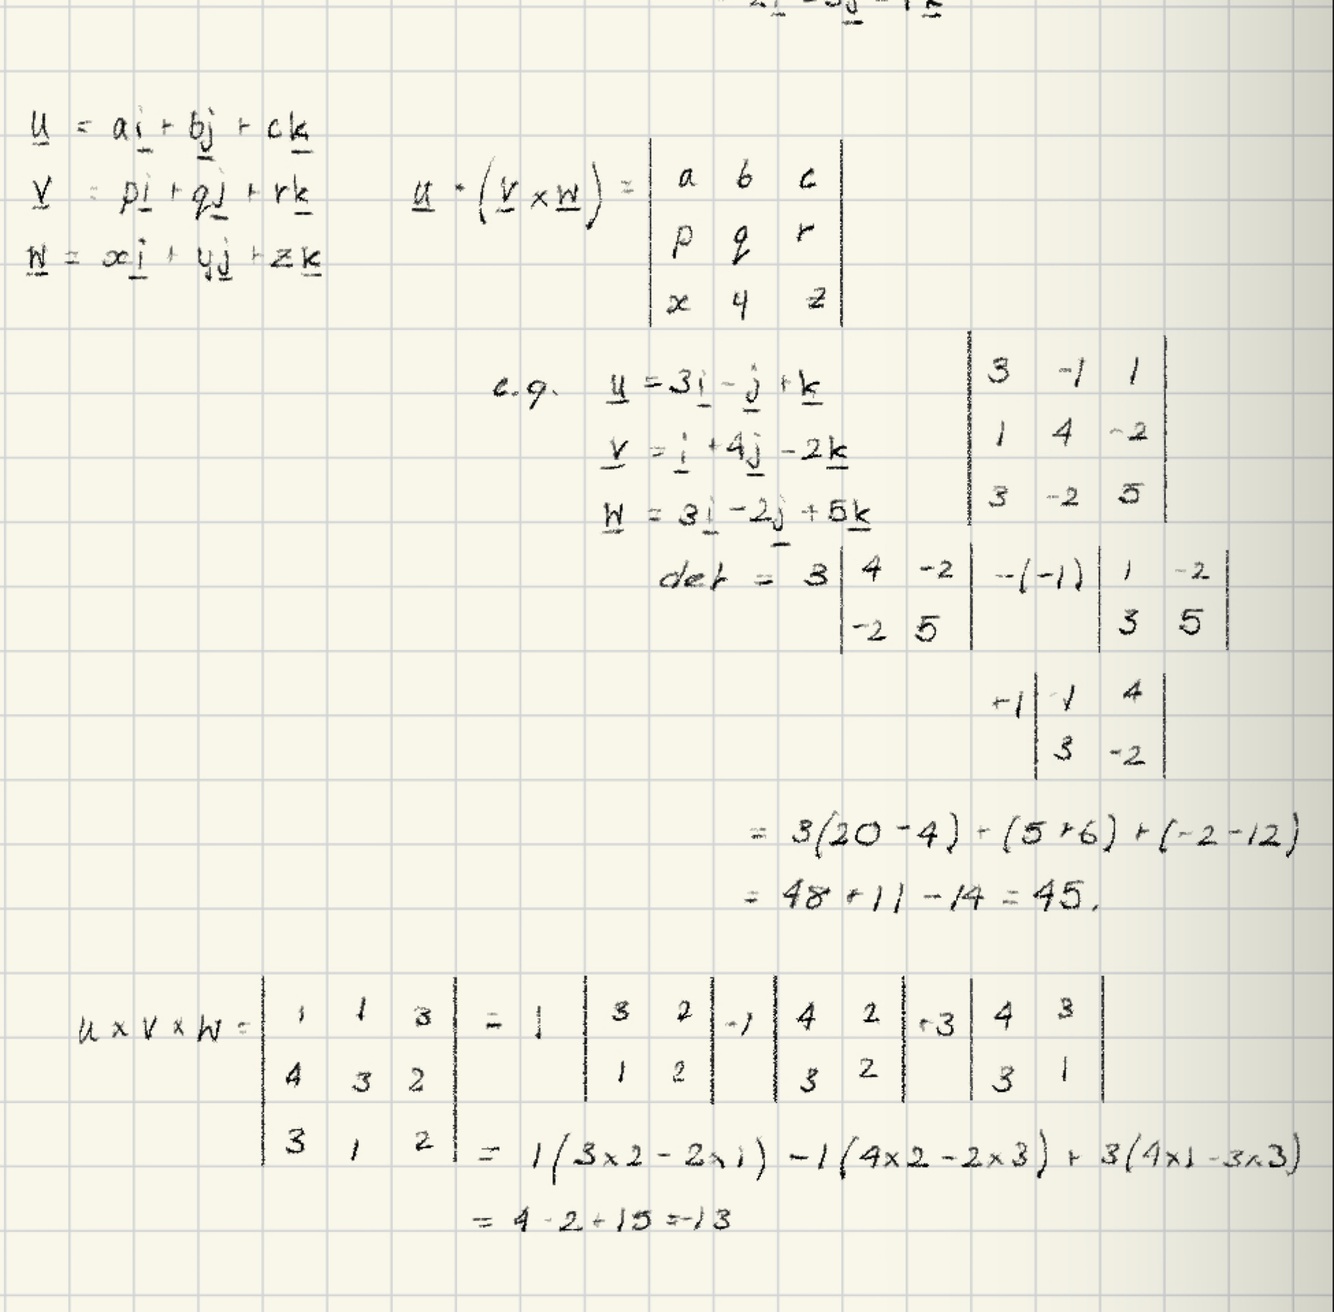 2i - 3j - 1k
u = ai + bj + ck
v = pi + qj + rk
w = xi + yj + zk
u · (v × w) = | a b c |
| p q r |
| x y z |
e.g. u = 3i - j + k
v = i + 4j - 2k
w = 3i - 2j + 5k
| 3 -1 1 |
| 1 4 -2 |
| 3 -2 5 |
det = 3 | 4 -2 | -(-1) | 1 -2 |
| -2 5 | | 3 5 |
+1 | 1 4 |
| 3 -2 |
= 3(20 - 4) + (5 + 6) + (-2 - 12)
= 48 + 11 - 14 = 45.
u × v × w = | 1 1 3 | = 1 | 3 2 | -1 | 4 2 | +3 | 4 3 |
| 4 3 2 | | 1 2 | | 3 2 | | 3 1 |
| 3 1 2 | = 1(3×2 - 2×1) - 1(4×2 - 2×3) + 3(4×1 - 3×3)
= 4 - 2 - 15 = -13